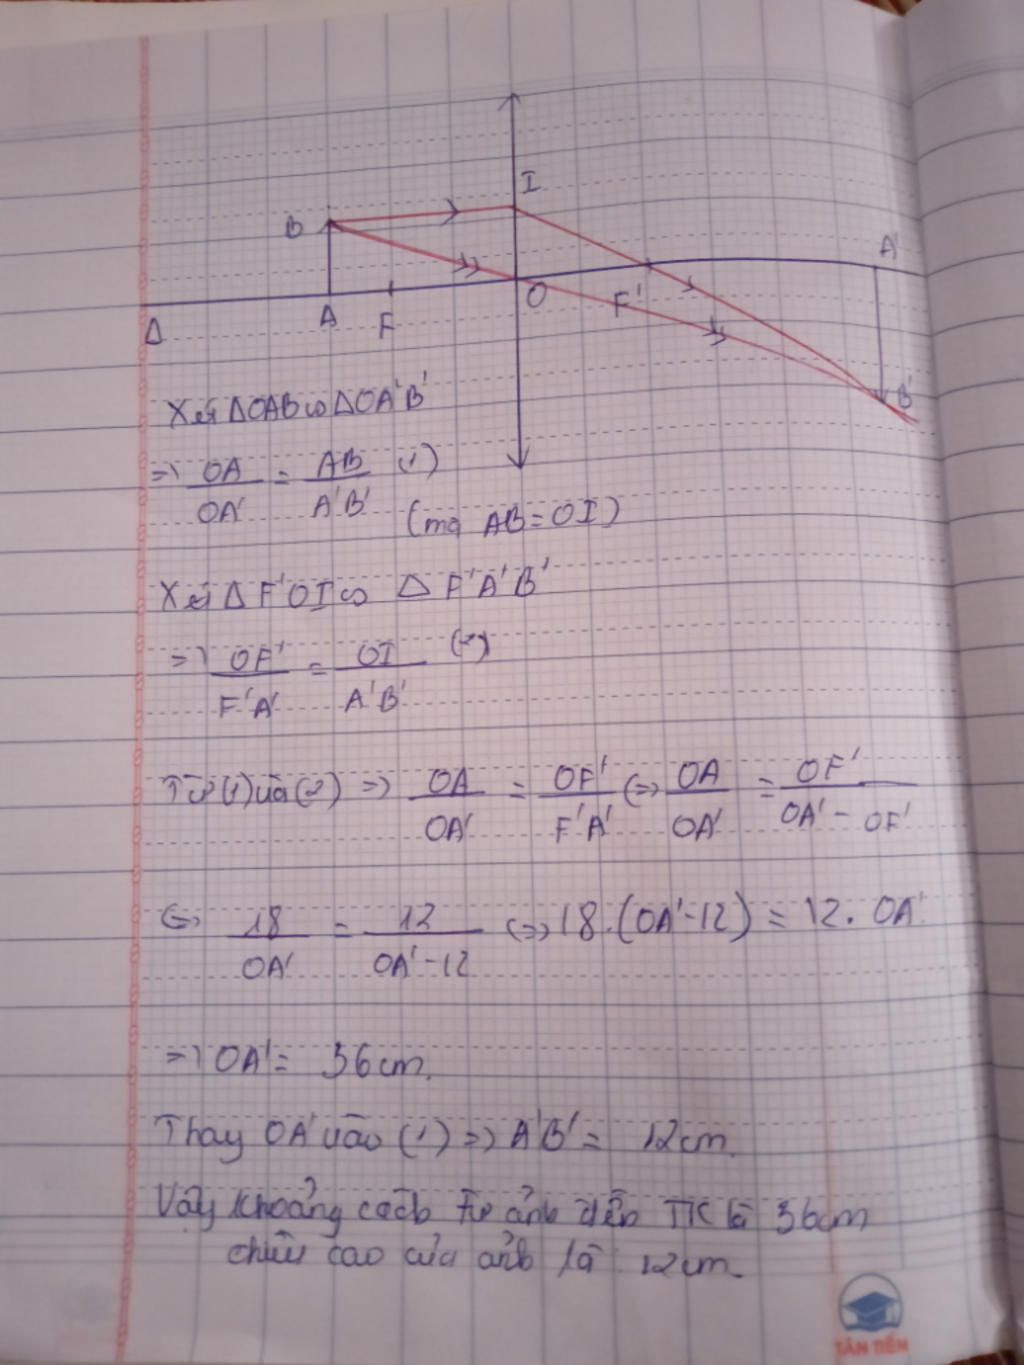 I
B
A'
O
F'
Δ
A
F
B'
Xét ΔOAB ∽ ΔOA'B'
=> OA/OA' = AB/A'B' (1)
(mà AB = OI)
Xét ΔF'OI ∽ ΔF'A'B'
=> OF'/F'A' = OI/A'B' (2)
Từ (1) và (2) => OA/OA' = OF'/F'A' <=> OA/OA' = OF'/OA' - OF'
<=> 18/OA' = 12/OA' - 12 <=> 18.(OA' - 12) = 12. OA'
=> OA' = 36cm.
Thay OA' vào (1) => A'B' = 12cm.
Vậy khoảng cách từ ảnh đến TK là 36cm
chiều cao của ảnh là 12cm.
TÂN TIẾN